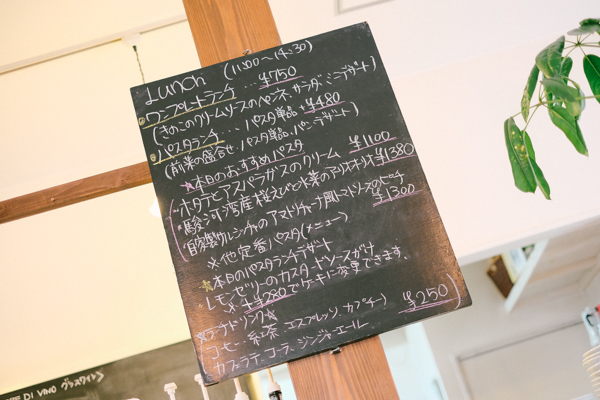 Lunch (11:00~14:30)
ワンプレートランチ … ¥750
(きのこのクリームソースのペンネ、サラダ、ミニデザート)
パスタランチ … パスタ単品+¥480
(前菜の盛合せ、パスタ単品、パン、デザート)
☆本日のおすすめパスタ
・ホタテとアスパラガスのクリーム ¥1100
・駿河湾産桜えびと水菜のアーリオオーリオ ¥1380
・自家製サルシッチャのアマトリチャーナ風トマトソースのビーチ ¥1300
※他定番パスタ(メニュー)
☆本日のパスタランチデザート
レモンゼリーのカスタードソースがけ
※+¥280でケーキに変更できます。
☆ランチドリンク☆
コーヒー、紅茶、エスプレッソ、カプチーノ ¥250
カフェラテ、コーラ、ジンジャーエール
DI VINO グラスワイン